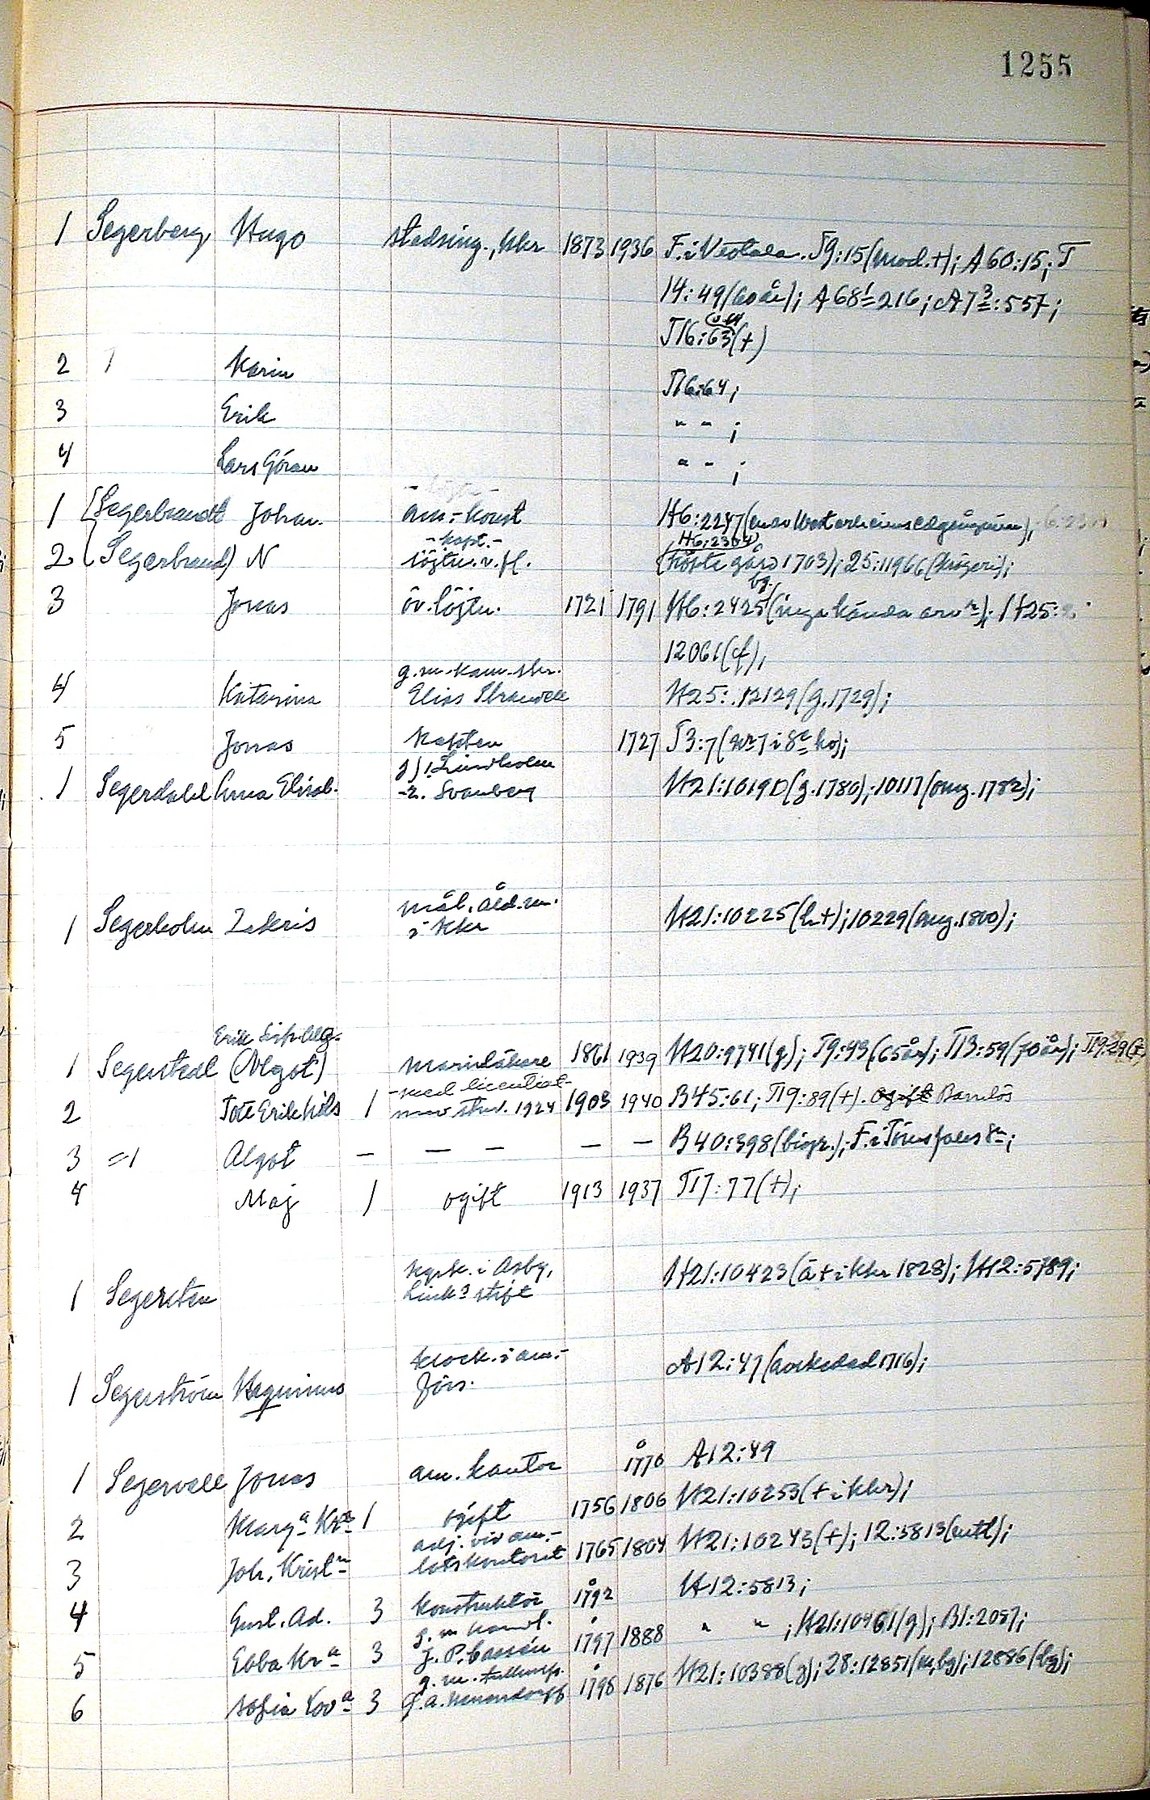 1255
1 Segerberg, Hugo stadsing., kkr 1873 1936 F. i Vestala. T9:15 (mod.+); A60:15; T
14:49 (60 år); A68:216; A73:557;
T16:63 (+)
2 Karin T16:64;
3 Erik " " ;
4 Lars Göran " " ;
1 [Segerbrandt Johan am:-konst H6:2247
-kapt.- H6:2304
2 (Segerbrand) N löjtn. v. fl. (köpte gård 1703); 25:11966
bg.
3 Jonas öv.löjtn. 1721 1791 H6:2425 (inga kända arv); H25:
12061 (f),
g. m. kam. skr.
4 Katarina Elias H25:.12129 (g.1729);
5 Jonas Kapten 1727 T3:7
g) 1. Lindholm
1 Segerdahl Anna Elisab. -2. Svanberg H21:10190 (g.1780); 10117 (omg. 1782);
mål. åld.m.
1 Segerholm Zakris i kkr H21:10225 (h+); 10229 (omg. 1800);
1 Segerstedt (Algot) Marinläkare 1861 1939 H20:9741 (g); T9:43 (65 år); T13:59 (70 år); T19:29 (+)
-med licentiat-
2 Tote Erik Nils 1 stud. 1924 1903 1940 B45:61; T19:89 (+). Ogift Barnlös
3 =1 Algot — — — — — B40:398 (biogr.);
4 Maj 1 ogift 1913 1937 T17:77 (+);
kyrk. i Asby,
1 Segersten Link? stift H21:10423 (ä + i kkr 1828); H12:5789;
klock. i am:-
1 Segerström Magninus förs. A12:47 (avskedad 1716);
1 Segervall Jonas am. kantor 1770 A12:49
2 Marga Kra 1 ogift 1756 1806 H21:10253 (+ i kkr);
adj. vid am:-
3 Joh. Kristn lotskontoret 1765 1804 H21:10243 (+); 12:5813
4 Gust. Ad. 3 Konstruktör 1792 H12:5813;
5 Ebba Kra 3 J. P. 1797 1888 " " ; H21:10461 (g); B1:2057;
6 Sofia Lova 3 1798 1876 H21:10388 (g); 28:12851 (m, bg); 12886 (bg);